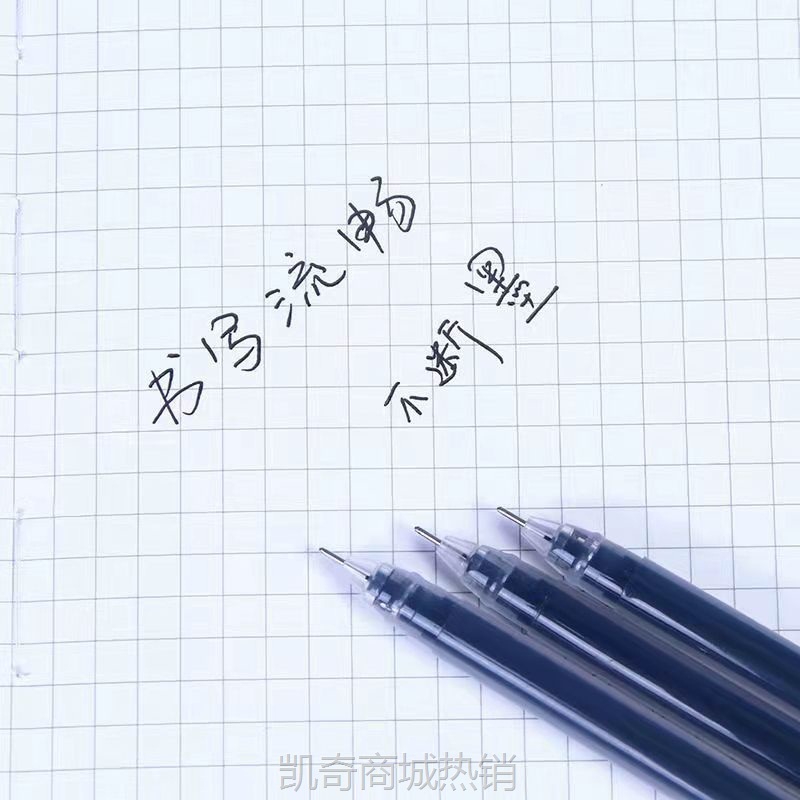 书写流畅
不断墨
凯奇商城热销